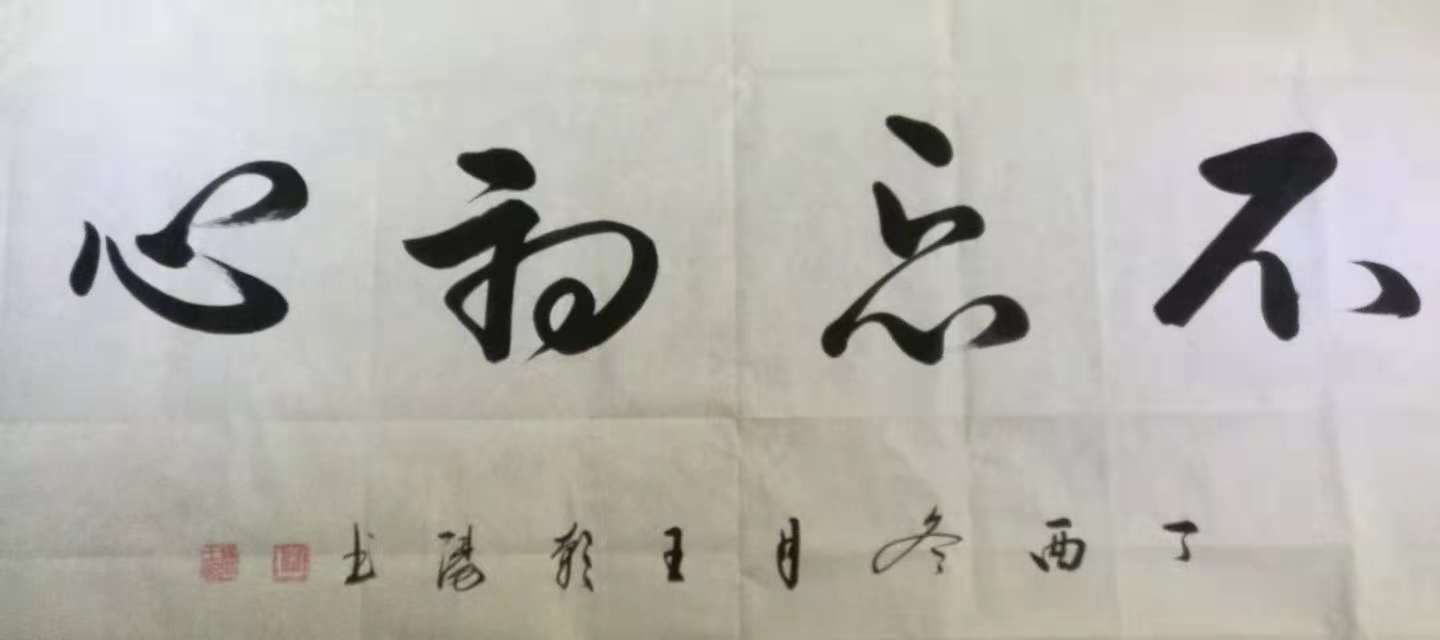 不忘初心
丁酉冬月王朝阳书